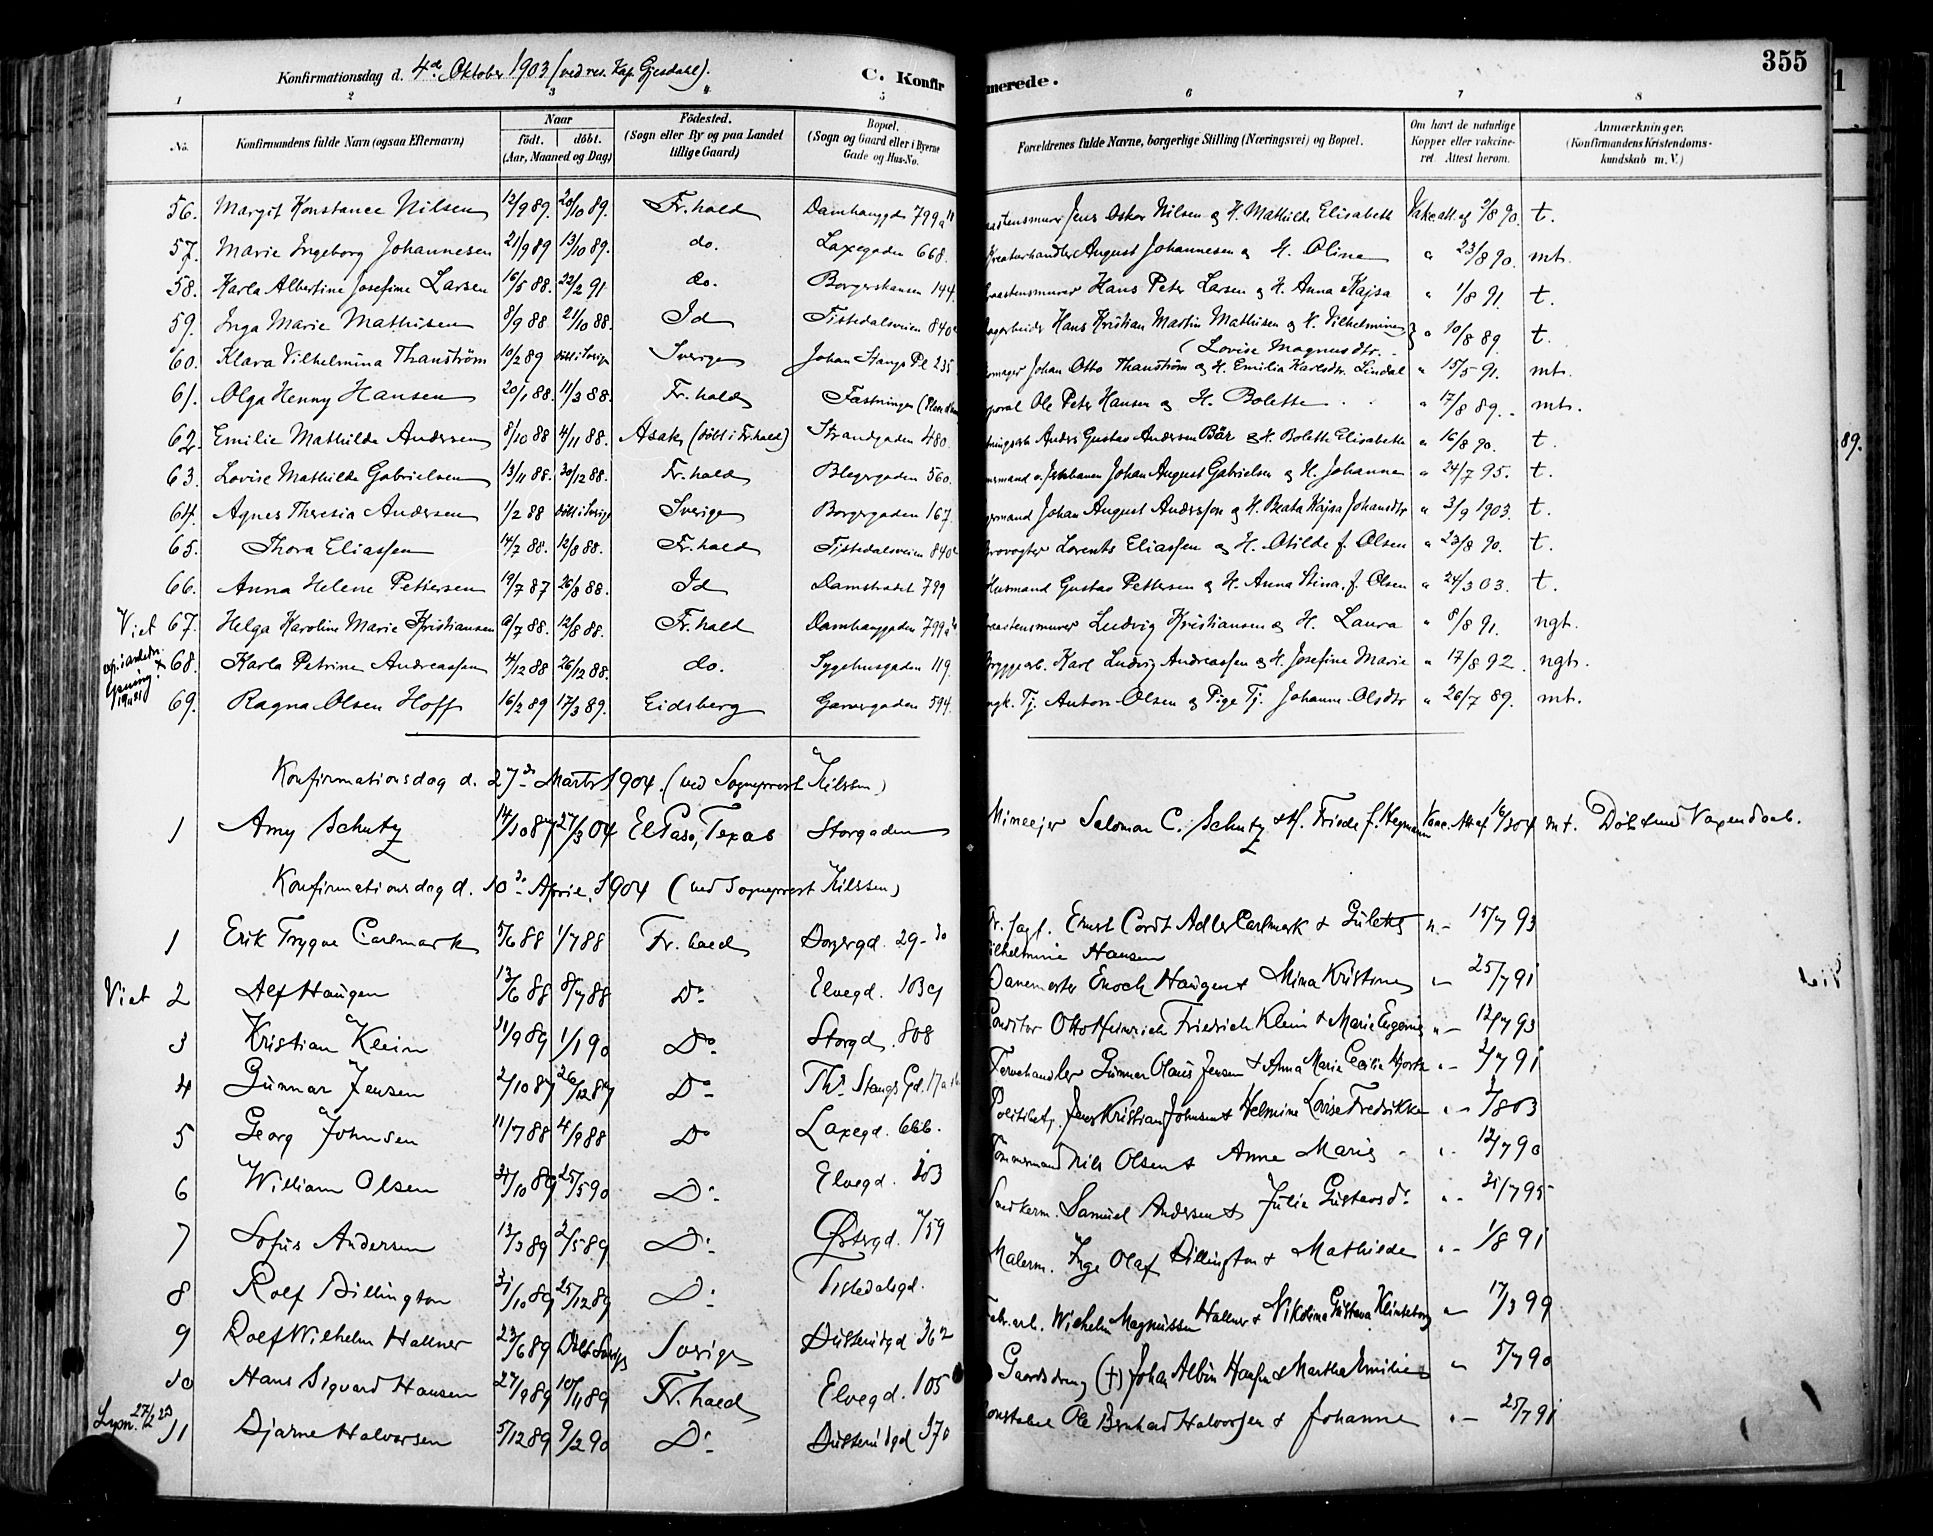 355
Konfirmationsdag d. 4de Oktober 1903 (ved res. Kap. Gjesdahl).
C. Konfirmerede.
1 2 3 5 6 7 8
No. Konfirmandens fulde Navn (ogsaa Efternavn) Naar født. døbt. (Aar, Maaned og Dag) Fødested. (Sogn eller By og paa Landet tillige Gaard) Bopæl. (Sogn og Gaard eller i Byerne Gade og Hus-No. Forældrenes fulde Navne, borgerlige Stilling (Næringsvei) og Bopæl. Om havt de naturlige Kopper eller vakcineret. Attest herom. Anmærkninger. (Konfirmandens Kristendomskundskab m. V.)
56. Margit Konstance Nilsen 12/9 89. 20/10 89. Fr.hald Damhauggdn 799a Jens Oskar Nilsen og H. Mathilde Elisabeth Vakc.att. af 9/8 90. t.
57. Marie Ingeborg Johannesen 21/9 89 13/10 89. do. Laxegaden 668. Kreaturhandler August Johannesen og H. Oline " 23/8 90. mt.
58. Karla Albertine Josefine Larsen 16/5 88. 22/2 91 do. Borgerskansen 144. Hans Peter Larsen og H. Anna Kajsa " 1/8 91. t.
59. Inga Marie Mathisen 8/9 88 21/10 88. Id Tistedalsveien 840 Hans Kristian Martin Mathisen og H. Vilhelmine " 10/8 89. t.
(Lovise Magnusdtr.
60. Klara Vilhelmina Thanström 10/2 89 Döbt i Sverige Sverige Johan Stangs Pl 235 Johan Otto Thanström og H. Emilia Karlsdtr. Lindal " 15/5 91. mt.
61. Olga Henny Hansen 20/1 88. 11/3 88. Fr.hald Fæstningen Ole Peter Hansen og H. Bolette " 17/8 89. mt.
62. Emilie Mathilde Andersen 8/10 88 4/11 88. Asak (döbt i Fr.hald) Strandgaden 480 Anders Gustav Andersen Bär og H. Bolette Elisabeth " 16/8 90. t.
63. Lovise Mathilde Gabrielsen 13/11 88. 30/12 88. Fr.hald Blegegaden 560. Johan August Gabrielsen og H. Johanne " 24/7 95. t.
64. Agnes Theresia Andersen 1/2 88 Döbt i Sverige Sverige Borgergaden 167. Johan August Andersson og H. Beata Kajsa Johansdtr " 3/9 1903. t.
65. Thora Eliassen 14/7 88. 12/8 88. Fr.hald Tistedalsveien 840 Brovogter Lorents Eliassen og H. Otilde f. Olsen " 23/8 90. t.
66. Anna Helene Pettersen 19/7 87 26/8 88. Id Damstrædet 799 Husmand Gustav Pettersen og H. Anna Stina f. Olsen " 24/3 03. t.
Viet 67. Helga Karoline Marie Kristiansen 9/7 88. 12/8 88. Fr.hald Damhauggaden 799a Ludvig Kristiansen og H. Laura " 8/8 91. ngt.
68. Karla Petrine Andreassen 4/12 88 26/12 88. do. Sygehusgaden 119. Bryggearb. Karl Ludvig Andreassen og H. Josefine Marie " 17/8 92. ngt.
69. Ragna Olsen Hoff 16/2 89 17/3 89. Eidsberg Garvergaden 594. Ungk. Tj. Anton Olsen og Pige Tj. Johanne Olsdtr " 26/7 89. mt.
Konfirmationsdag d. 27de Marts 1904. (ved Sogneprest Nilssen)
1 Amy Schutz 14/10 87 27/3 04 El Paso, Texas Storgaden Mineejer Salomon C. Schutz & H. Frieda f. Hegmann Vacc. Att. af 16/3 04 mt. Döbt som Voxen Daab.
Konfirmationsdag d. 10de April 1904 (ved Sogneprest Nilssen)
1 Erik Trygve Carlmark 5/6 88 1/7 88 Fr.hald Borgergd. 29-30 Ernst Cordt Adler Carlmark & Gulette " - 15/7 93
Vilhelmine Hansen
Viet 2 Alf Haugen 13/6 88 8/7 88 Do Elvegd. 103 Banemester Enoch Haugen & Mina Kristine " - 25/7 91
3 Kristian Klein 11/9 89 1/1 90 Do Storgd. 808 Conditor Otto Heinrich Friedrich Klein & Marie Eugenie " - 12/7 93
4 Gunnar Jensen 2/10 87 26/12 87 Do Ths. Stangs Gd. 17a Farvehandler Gunnar Olaus Jensen & Anna Marie Cecilie Hjorth " - 2/7 91
5 Georg Johnsen 11/7 88 4/9 88 Do Laxegd. 666. Politibetj. Jens Kristian Johnsen & Helmine Lovise Fredrikke " - 3/8 03
6 William Olsen 31/10 89 25/5 90 Do Elvegd. 103 Tömmermand Nils Olsen & Anne Marie " - 12/7 90
7 Sofus Andersen 13/3 89 2/5 89 Do Østergd. 759 Snedkerm. Samuel Andersen & Julia Gustavsd. " - 31/7 95
8 Rolf Billington 31/10 89 25/12 89 Do Tistedalsgd. Malerm. Inge Olaf Billington & Mathilde " - 1/8 91
9 Rolf Wilhelm Hallner 23/6 89 Döbt Sverige Sverige Busterudgd 362 Fabr.arb. Wilhelm Magnussen Hallner & Nikolina Gustava Klinteberg " - 17/3 99
10 Hans Sigvard Hansen 27/9 89 10/11 89 Fr.hald Elvegd. 105 Gaardsdreng (+) Johan Albin Hansen & Martha Emilie " - 5/7 90
Lysn. 27/2 20 11 Bjarne Halvorsen 5/12 89 9/2 90 Do Busterudgd 370 Konstabel Ole Bernhard Halvorsen & Johanne " - 25/7 91
89.